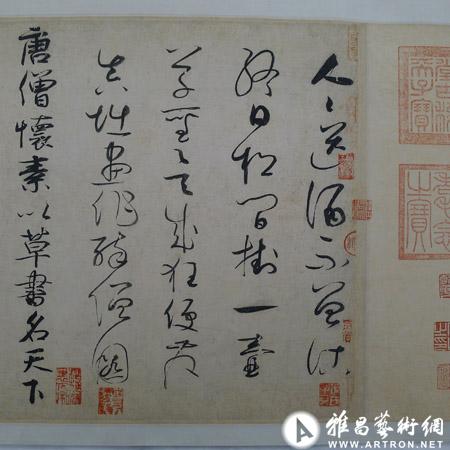 人〻送酒不曾沽
終日松間掛一壺
草聖欲成狂便發
真堪畫作醉僧圖
唐僧懷素以草書名天下
雅昌藝術網
WWW.ARTRON.NET